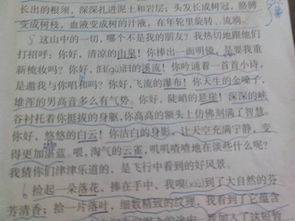 长出的根须，深深扎进泥土和岩层；头发长成树冠，胳膊
变成树枝，血液变成树的汁液，在年轮里旋转、流淌。
这山中的一切，哪个不是我的朋友？我热切地跟他们
打招呼：你好，清凉的山泉！你捧出一面明镜，是要我重
新梳妆吗？你好，汩汩的溪流！你吟诵着一首首小诗，
是邀我与你唱和吗？你好，飞流的瀑布！你天生的金嗓子，
雄浑的男高音多么有气势。你好，陡峭的悬崖！深深的峡
谷衬托着你挺拔的身躯，你高高的额头上仿佛刻满了智慧。
你好，悠悠的白云！你洁白的身影，让天空充满宁静，变
得更加湛蓝。喂，淘气的云雀，叽叽喳喳地在谈些什么呢？
我猜你们津津乐道的，是飞行中看到的好风景。
捡起一朵落花，捧在手中，我嗅(xiù)到了大自然的芬
芳清香；拾一片落叶，细数精致的纹理，我看到了它蕴含